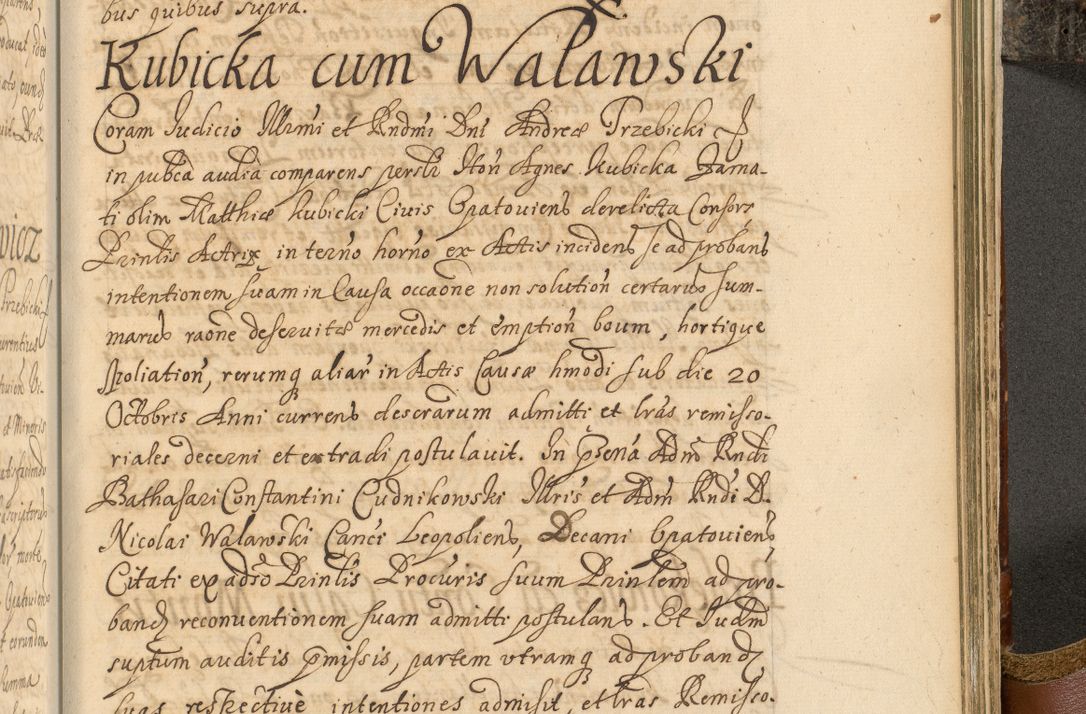 bus quibus supra.
Kubicka cum Walawski
Coram Judicio Illrmi et Rndmi Dni Andreæ Trzebicki
in pubca audia comparens persli Hon Agnes Kubicka Fama-
ti olim Matthiæ Kubicki Civis Opatoviens derelicta Consors
Prinlis Actrix in termo horno ex Actis incidens se ad probans
intentionem suam in Causa occaone non solution certarus sum-
marus raone deservitæ mercedis et emption boum, hortique
spoliation, rerumq aliar in Actis Causæ hmodi sub die 20
Octobris Anni currens descrarum admitti et lras remisso-
riales decerni et extradi postulavit. In pzena Adm Rndi
Balthasari Constantini Cudnikowski Illris et Adm Rndi D.
Nicolai Walawski Canci Leopoliens, Decani Opatoviens
Citati ex adso Prinlis Procuris suum Prinlem ad pro-
band reconventionem suam admitti postulans. Et Judm
suptum auditis pmissis, partem vtramq ad proband
suas respective intentiones admisit, et lras Remisso-